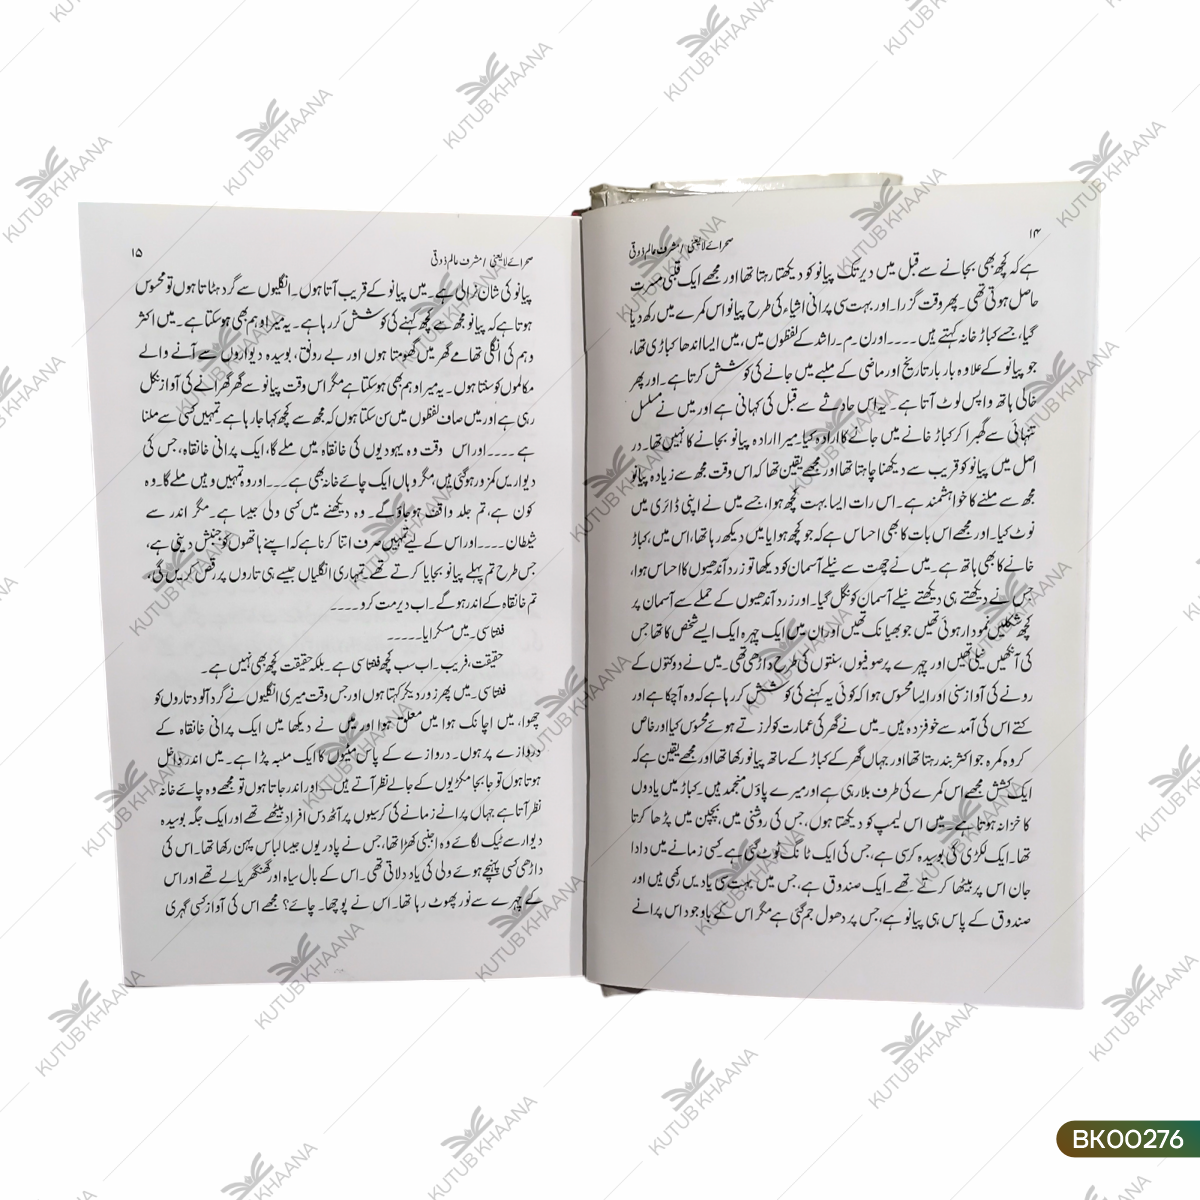 ۱۴
صحرائے لا یعنی / مشرف عالم ذوقی
ہے کہ کچھ بھی بجانے سے قبل میں دیر تک پیانو کو دیکھتا رہتا تھا اور مجھے ایک قلبی مسرت
حاصل ہوتی تھی۔ پھر وقت گزرا۔ اور بہت سی پرانی اشیاء کی طرح پیانو اس کمرے میں رکھ دیا
گیا، جسے کباڑ خانہ کہتے ہیں۔۔۔۔ اور ن۔م۔ راشد کے لفظوں میں، میں ایسا اندھا کباڑی تھا،
جو پیانو کے علاوہ بار بار تاریخ اور ماضی کے ملبے میں جانے کی کوشش کرتا ہے۔ اور پھر
خالی ہاتھ واپس لوٹ آتا ہے۔ یہ اس حادثے سے قبل کی کہانی ہے اور میں نے مسلسل
تنہائی سے گھبرا کر کباڑ خانے میں جانے کا ارادہ کیا۔ میرا ارادہ پیانو بجانے کا نہیں تھا۔ در
اصل میں پیانو کو قریب سے دیکھنا چاہتا تھا اور مجھے یقین تھا کہ اس وقت مجھ سے زیادہ پیانو
مجھ سے ملنے کا خواہشمند ہے۔ اس رات ایسا بہت کچھ ہوا، جسے میں نے اپنی ڈائری میں
نوٹ کیا۔ اور مجھے اس بات کا بھی احساس ہے کہ جو کچھ ہوا یا میں دیکھ رہا تھا، اس میں، کباڑ
خانے کا بھی ہاتھ ہے۔ میں نے چھت سے نیلے آسمان کو دیکھا تو زرد آندھیوں کا احساس ہوا،
جس نے دیکھتے ہی دیکھتے نیلے آسمان کو نگل گیا۔ اور زرد آندھیوں کے حملے سے آسمان پر
کچھ شکلیں نمودار ہوئی تھیں جو بھیانک تھیں اور ان میں ایک چہرہ ایک ایسے شخص کا تھا جس
کی آنکھیں نیلی تھیں اور چہرے پر صوفیوں، سنتوں کی طرح داڑھی تھی۔ میں نے دو کتوں کے
رونے کی آواز سنی اور ایسا محسوس ہوا کہ کوئی یہ کہنے کی کوشش کر رہا ہے کہ وہ آچکا ہے اور
کتے اس کی آمد سے خوفزدہ ہیں۔ میں نے گھر کی عمارت کو لرزتے ہوئے محسوس کیا اور خاص
کر وہ کمرہ جو اکثر بند رہتا تھا اور جہاں گھر کے کباڑ کے ساتھ پیانو رکھا تھا اور مجھے یقین ہے کہ
ایک کشش مجھے اس کمرے کی طرف بلا رہی ہے اور میرے پاؤں منجمد ہیں۔ کباڑ میں یادوں
کا خزانہ ہوتا ہے۔ میں اس لیمپ کو دیکھتا ہوں، جس کی روشنی میں، بچپن میں پڑھا کرتا
تھا۔ ایک لکڑی کی بوسیدہ کرسی ہے، جس کی ایک ٹانگ ٹوٹ گئی ہے کسی زمانے میں دادا
جان اس پر بیٹھا کرتے تھے۔ ایک صندوق ہے، جس میں بہت سی یادیں رکھی ہیں اور
صندوق کے پاس ہی پیانو ہے، جس پر دھول جم گئی ہے مگر اس کے باوجود اس پرانے
۱۵
صحرائے لا یعنی / مشرف عالم ذوقی
پیانو کی شان نرالی ہے۔ میں پیانو کے قریب آتا ہوں۔ انگلیوں سے گرد ہٹاتا ہوں تو محسوس
ہوتا ہے کہ پیانو مجھ سے کچھ کہنے کی کوشش کر رہا ہے۔ یہ میرا وہم بھی ہوسکتا ہے۔ میں اکثر
وہم کی انگلی تھامے گھر میں گھومتا ہوں اور بے رونق، بوسیدہ دیواروں سے آنے والے
مکالموں کو سنتا ہوں۔ یہ میرا وہم بھی ہوسکتا ہے مگر اس وقت پیانو سے گھر گھرانے کی آواز نکل
رہی ہے اور میں صاف لفظوں میں سن سکتا ہوں کہ مجھ سے کچھ کہا جا رہا ہے۔ تمہیں کسی سے ملنا
ہے ۔۔۔۔ اور اس وقت وہ یہودیوں کی خانقاہ میں ملے گا، ایک پرانی خانقاہ، جس کی
دیواریں کمزور ہو گئی ہیں، مگر وہاں ایک چائے خانہ بھی ہے ۔۔۔ اور وہ تمہیں وہیں ملے گا۔ وہ
کون ہے، تم جلد واقف ہو جاؤ گے۔ وہ دیکھنے میں کسی ولی جیسا ہے۔ مگر اندر سے
شیطان ۔۔۔۔ اور اس کے لیے تمہیں صرف اتنا کرنا ہے کہ اپنے ہاتھوں کو جنبش دینی ہے،
جس طرح تم پہلے پیانو بجایا کرتے تھے۔ تمہاری انگلیاں جیسے ہی تاروں پر رقص کریں گی،
تم خانقاہ کے اندر ہو گے۔ اب دیر مت کرو ۔۔۔۔
فنتاسی۔ میں مسکرایا ۔۔۔۔۔
حقیقت، فریب۔ اب سب کچھ فنتاسی ہے۔ بلکہ حقیقت کچھ بھی نہیں ہے۔
فنتاسی۔ میں پھر زور دیکر کہتا ہوں اور جس وقت میری انگلیوں نے گرد آلود تاروں کو
چھوا، میں اچانک ہوا میں معلق ہوا اور میں نے دیکھا میں ایک پرانی خانقاہ کے
دروازے پر ہوں۔ دروازے کے پاس مٹیوں کا ایک ملبہ پڑا ہے۔ میں اندر داخل
ہوتا ہوں تو جا بجا مکڑیوں کے جالے نظر آتے ہیں۔ اور اندر جاتا ہوں تو مجھے وہ چائے خانہ
نظر آتا ہے جہاں پرانے زمانے کی کرسیوں پر آٹھ دس افراد بیٹھے تھے اور ایک جگہ بوسیدہ
دیوار سے ٹیک لگائے وہ اجنبی کھڑا تھا، جس نے پادریوں جیسا لباس پہن رکھا تھا۔ اس کی
داڑھی کسی پہنچے ہوئے ولی کی یاد دلاتی تھی۔ اس کے بال سیاہ اور گھنگھریالے تھے اور اس
کے چہرے سے نور پھوٹ رہا تھا۔ اس نے پوچھا۔ چائے؟ مجھے اس کی آواز کسی گہری
BK00276
KUTUB KHAANA